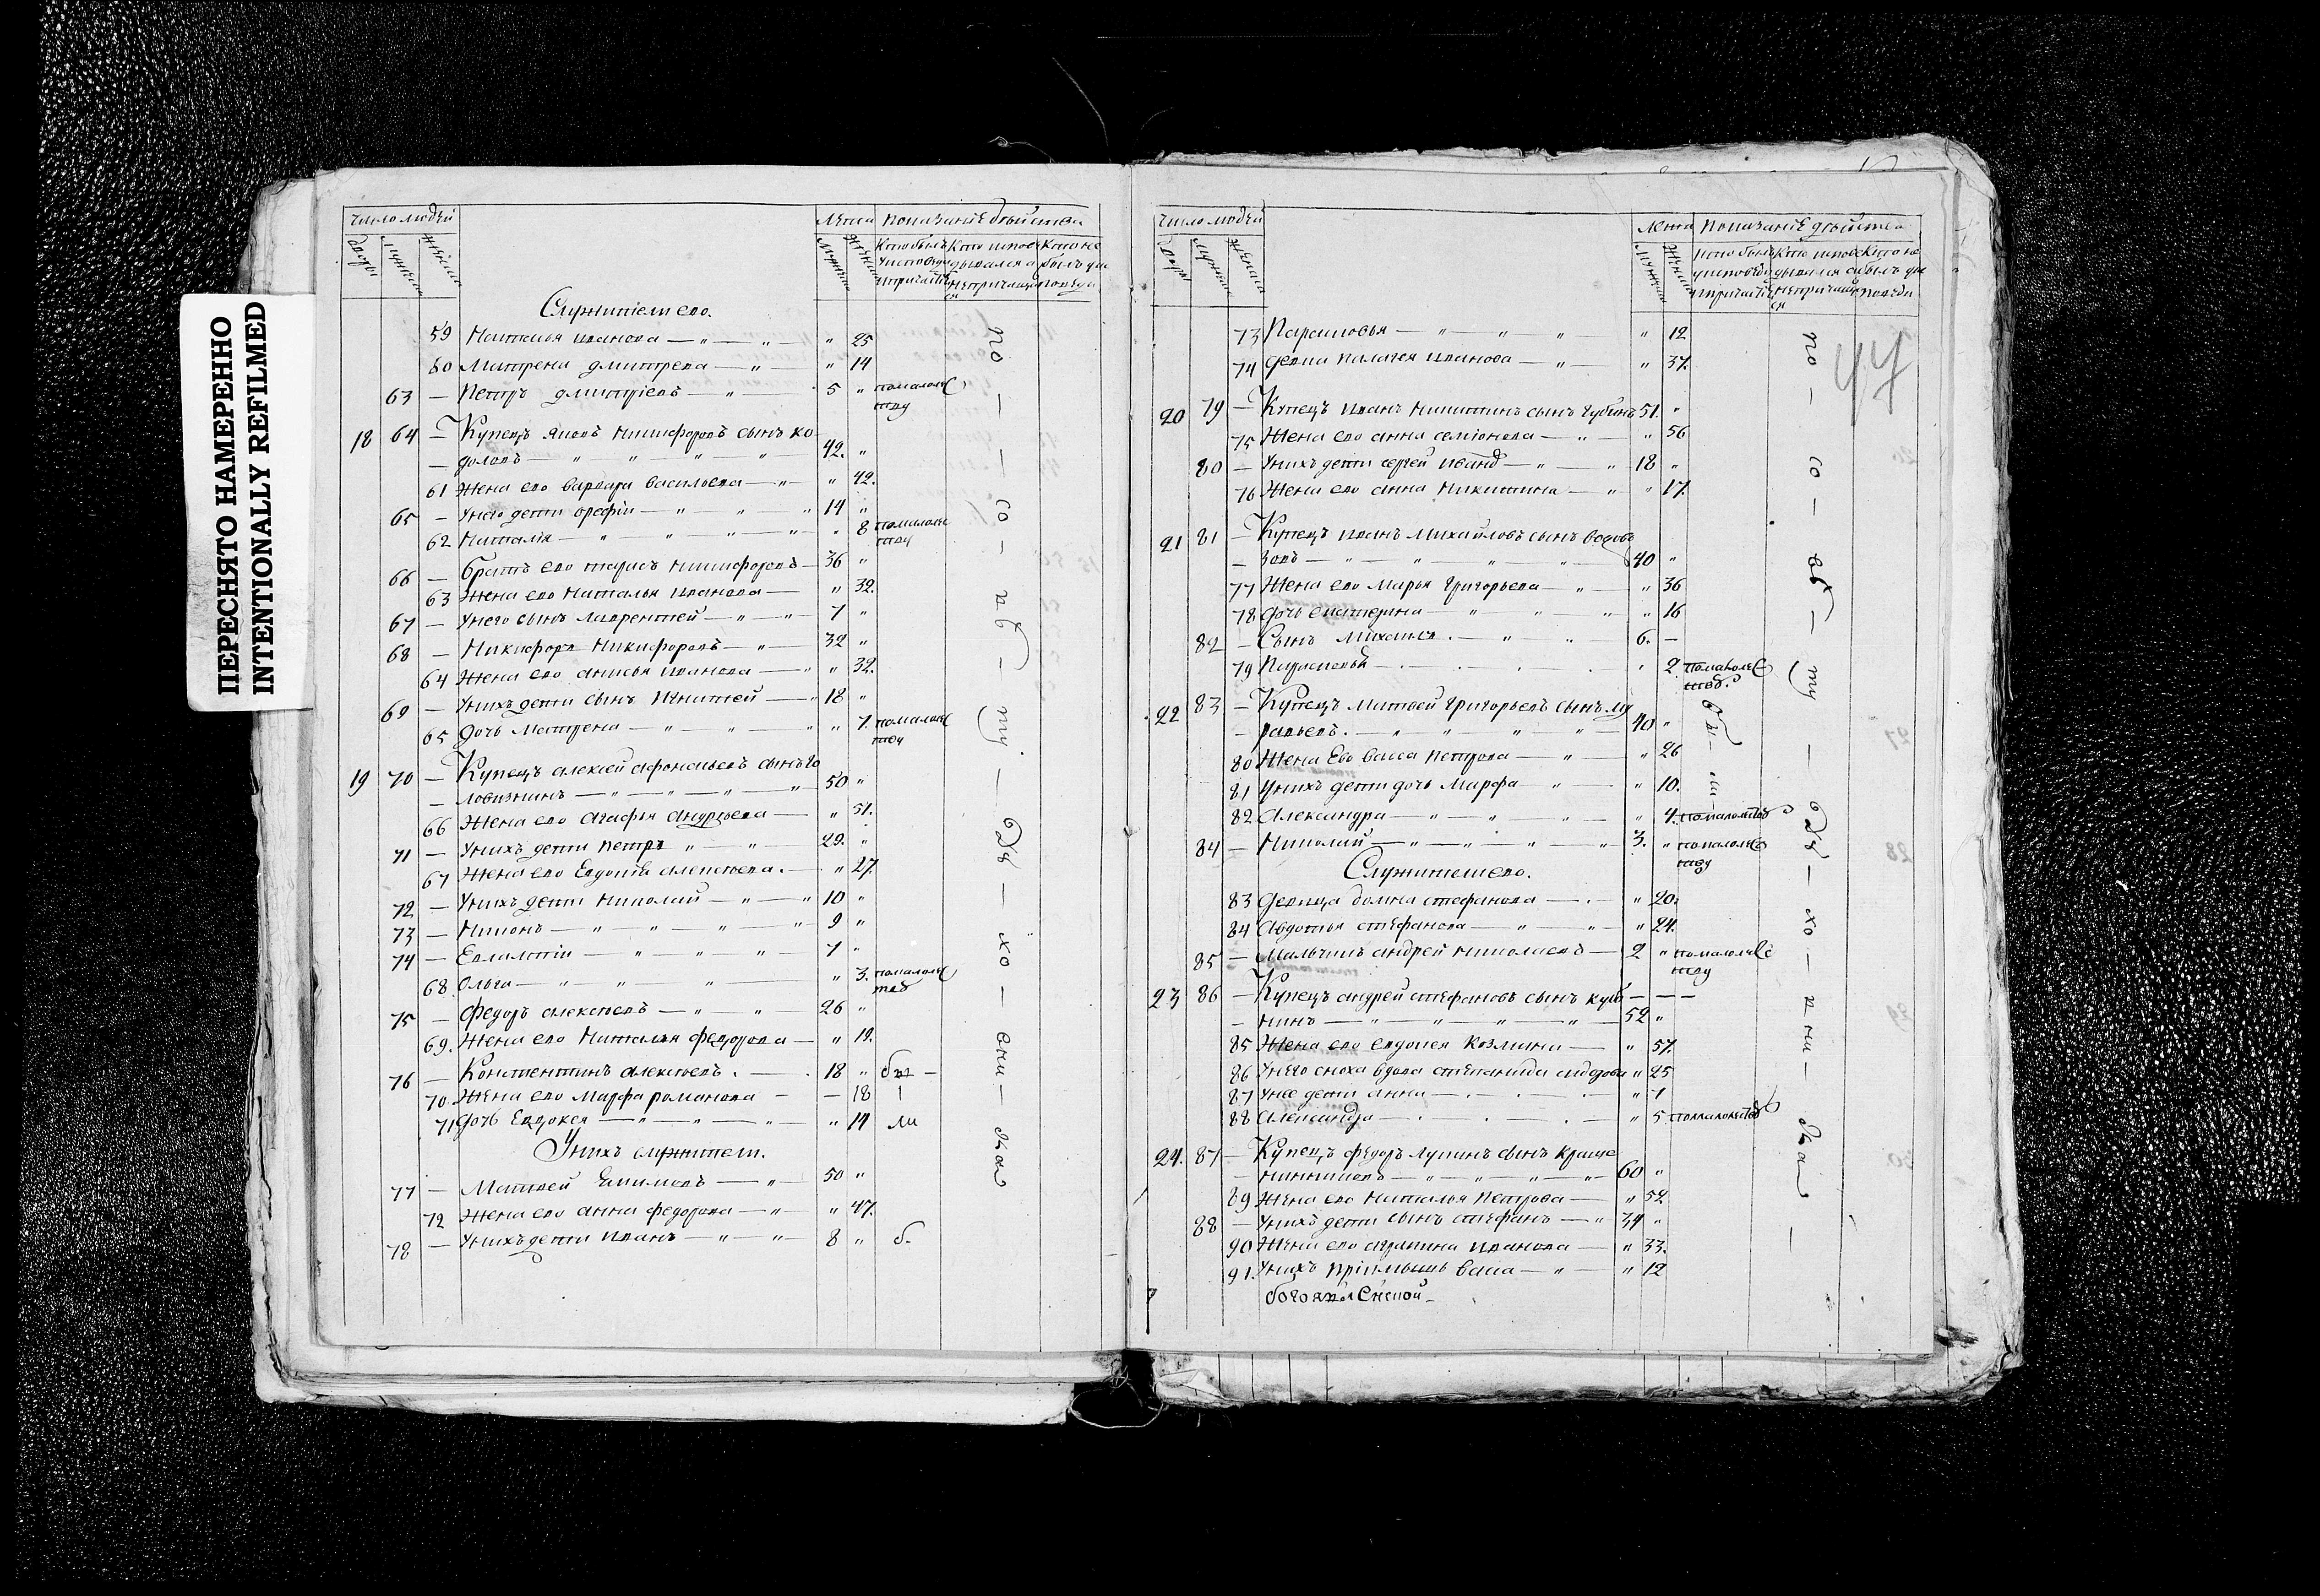 ПЕРЕСНЯТО НАМЕРЕННО
INTENTIONALLY REFILMED
число людей
Лета показание действа
дворы мужеска женска
Служители ево.
59 Наталья иванова — " — " — " 25
60 Матрена дмитрева — " — " 14
63 — Петръ дмитріевъ — " — 5 "
18 64 — Купецъ яковъ никифоровъ сынъ ко
— доловъ — " — " — " — " — 42. "
61 Жена ево варвара васильева — " — " 42.
65 — У него дети орефiи — " — " — " 14 "
62 Наталiя — " — " — " — " — " 8 помалолетству
66 — братъ ево тарасъ никифоровъ — 36 "
63 Жена ево Наталья иванова — " 32.
67 — У него сынъ лаврентей — " — " — 7 "
68 — Никифоръ Никифоровъ — " — 32 "
64 Жена ево анисья иванова — " " 32.
69 — У нихъ дети сынъ игнатей — " 18 "
65 дочь матрена — " — " — " " 7.
19 70 — Купецъ алексей афонасьевъ сынъ го
— ловизнинъ — " — " — " — " 50 "
66 Жена ево агафья андреева — " 51.
71 — У нихъ дети петръ " — " — 29. "
67 Жена ево Евдокiя алексеева. — " 27.
72 — У нихъ дети николай — " — " 10 "
73 — — " — " — " — " 9 "
74 — Евлампiй — " — " — " — 7 "
68 Ольга — " — " — " — " 3.
75 — Федоръ алексеевъ — " — " 26 "
69. Жена ево Наталья федорова — " 19.
76 — Констентинъ алексеевъ. — . 18 "
70 Жена ево марфа романова — — 18
71 дочь Евдокея — " — " — " — " 14 ли
У нихъ служители.
77 — Матвей Екимовъ — " — 50 "
72 Жена ево анна федорова — " — " 47.
78 — У нихъ дети иванъ — " — " — 8 " б.
число людей
Лета показание действа
дворы мужеска женска
44
73 Парасковья — " — " — " " 12
74 девка палагея иванова — " — " 37.
20 79 — Купецъ иванъ никитинъ сынъ губинъ 51. "
75 Жена ево анна семiонова — " — " 56
80 — У нихъ дети сергей — " — " 18 "
76 Жена ево анна никитина — " " 17.
21 81 — Купецъ иванъ михайловъ сынъ
— зовъ — " — " — " — " — 40 "
77 Жена ево марья григорьева — " — " 36
78 дочь екатерина — " — " — " " 16
82 — Сынъ михаила. — " — " 6. —
79 2 помалолетств.
22 83 — Купецъ матвей григорьевъ сынъ му
— равьевъ. — " — " — " — " — 40 "
80 Жена Ево васса петрова — " — " 26
81 У нихъ дети дочь марфа " — " 10.
82 Александра — " — " — " — " 4. помалолетству
84 — Николай — " — " — " — " 3. " помалолетству
Служители ево.
83 девица домна стефанова — . — " 20.
84 Авдотья стефанова — " — " — " 24.
85 — Мальчикъ андрей николаевъ — 2 " помалолетству
23 86 — Купецъ андрей стефановъ сынъ — — —
— нинъ — " — " — " — " — 52 "
85 Жена ево евдокея козмина — " 57.
86 У него сноха вдова степанида " 25
87 У нее дети анна — . — . — . — " 7
88 Александра — . — . — . — " 5 помалолетству
24. 87 — Купецъ федоръ лукинъ сынъ краше
нинниковъ — " — " — " — " — 60 "
89 Жена ево наталья петрова — " 52
88 — У нихъ дети сынъ стефанъ — " 34 "
90 Жена ево агрипина иванова — " 33.
91. У нихъ васса — " — " 12
богоявленской —